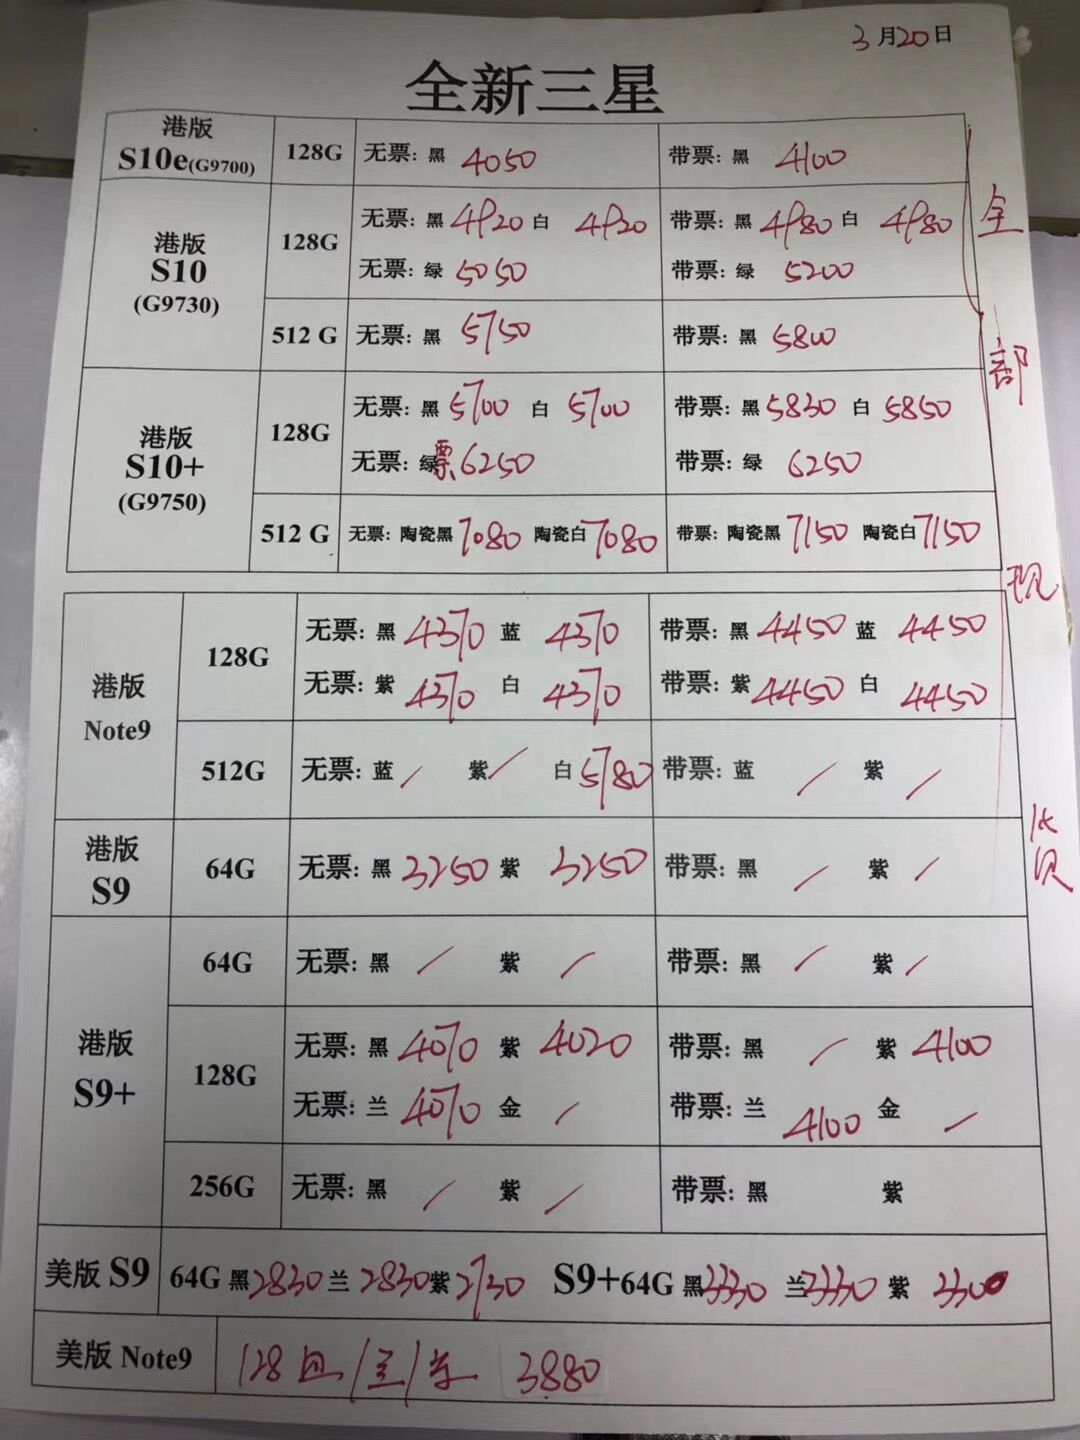 3月20日
全新三星
港版 S10e(G9700) 128G 无票: 黑 4050 带票: 黑 4100
港版 S10 (G9730) 128G 无票: 黑 4920 白 4920 带票: 黑 4980 白 4980
无票: 绿 5050 带票: 绿 5200
512 G 无票: 黑 5750 带票: 黑 5800
港版 S10+ (G9750) 128G 无票: 黑 5700 白 5700 带票: 黑 5830 白 5850
无票: 绿 票 6250 带票: 绿 6250
512 G 无票: 陶瓷黑 7080 陶瓷白 7080 带票: 陶瓷黑 7150 陶瓷白 7150
港版 Note9 128G 无票: 黑 4370 蓝 4370 带票: 黑 4450 蓝 4450
无票: 紫 4370 白 4370 带票: 紫 4450 白 4450
512G 无票: 蓝 / 紫 / 白 5780 带票: 蓝 / 紫 /
港版 S9 64G 无票: 黑 3250 紫 3250 带票: 黑 / 紫 /
港版 S9+ 64G 无票: 黑 / 紫 / 带票: 黑 / 紫 /
128G 无票: 黑 4070 紫 4020 带票: 黑 / 紫 4100
无票: 兰 4070 金 / 带票: 兰 4100 金 /
256G 无票: 黑 / 紫 / 带票: 黑 紫
美版 S9 64G 黑 2830 兰 2830 紫 2730 S9+64G 黑 3330 兰 3330 紫 3300
美版 Note9 128 / 兰 / 紫 3880
全部现货